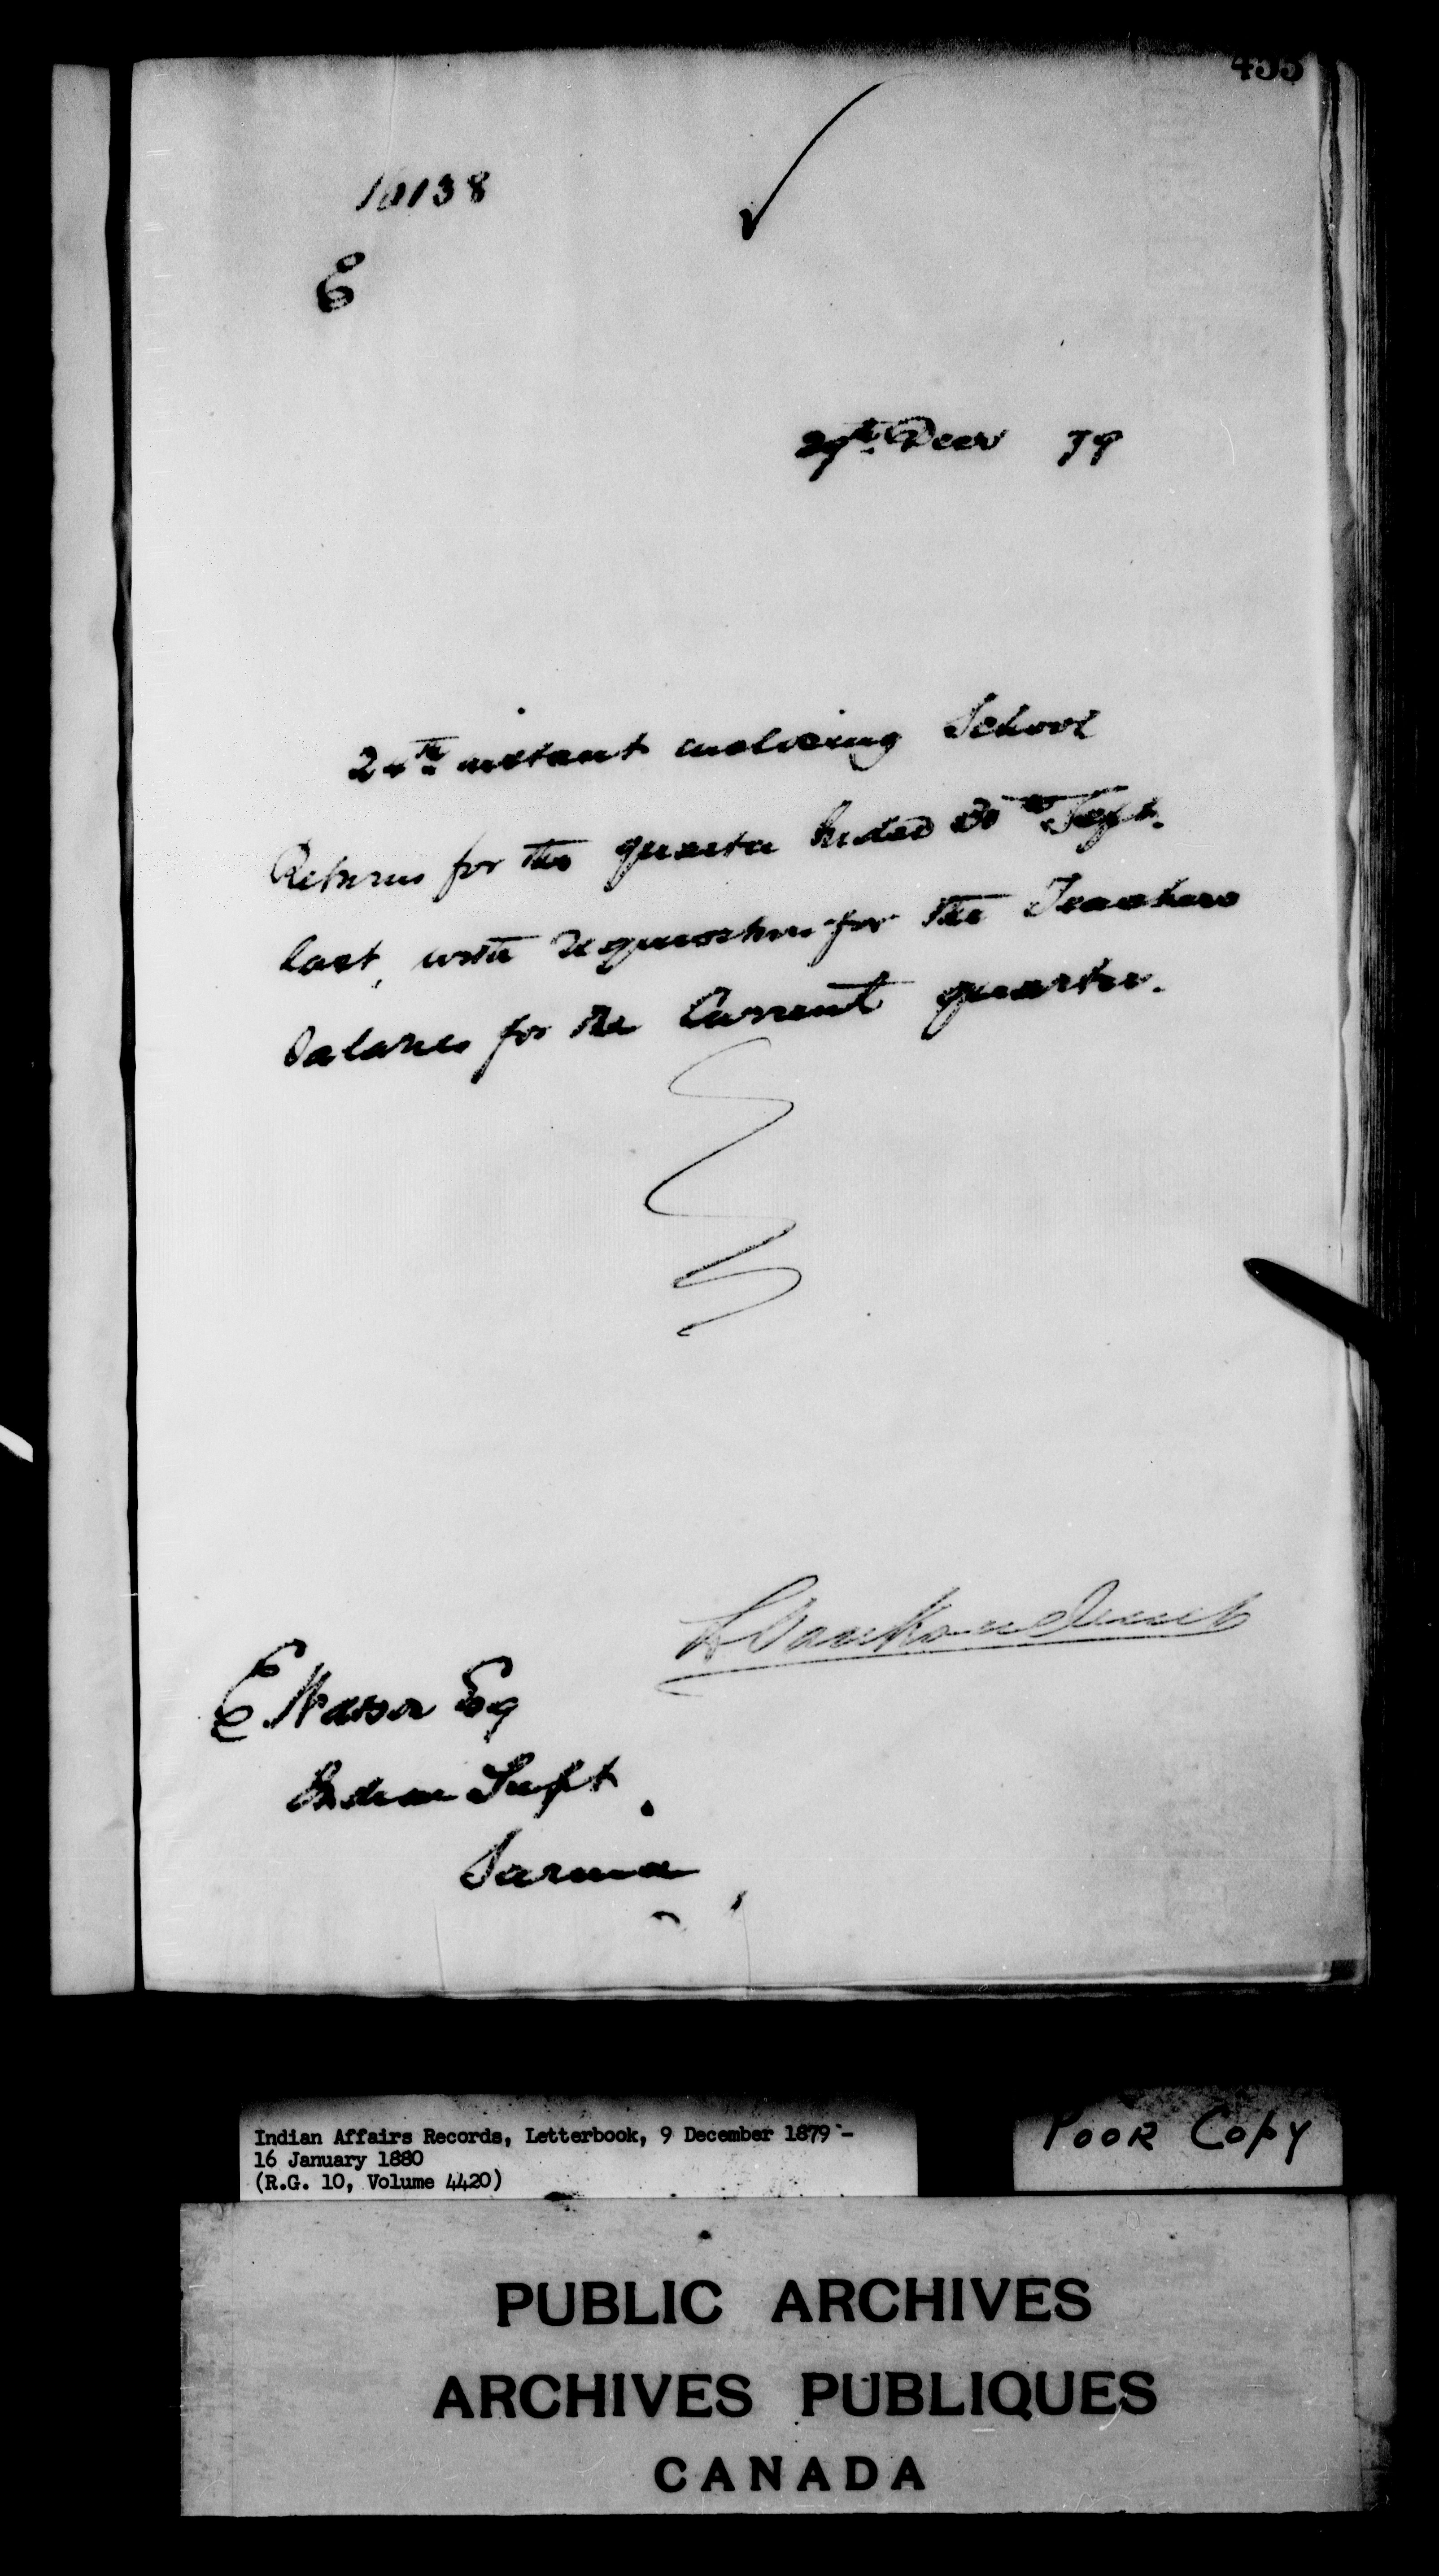 455
10138
E
29th Decr 79
24th instant enclosing School
Returns for the quarter Ended 30th Sept.
last, with requisition for the Teachers
Salaries for the Current quarter.
L Vankoughnet
E Watson Esq
Indian Supt
Sarnia
Indian Affairs Records, Letterbook, 9 December 1879 -
16 January 1880
(R.G. 10, Volume 4420)
POOR COPY
PUBLIC ARCHIVES
ARCHIVES PUBLIQUES
CANADA